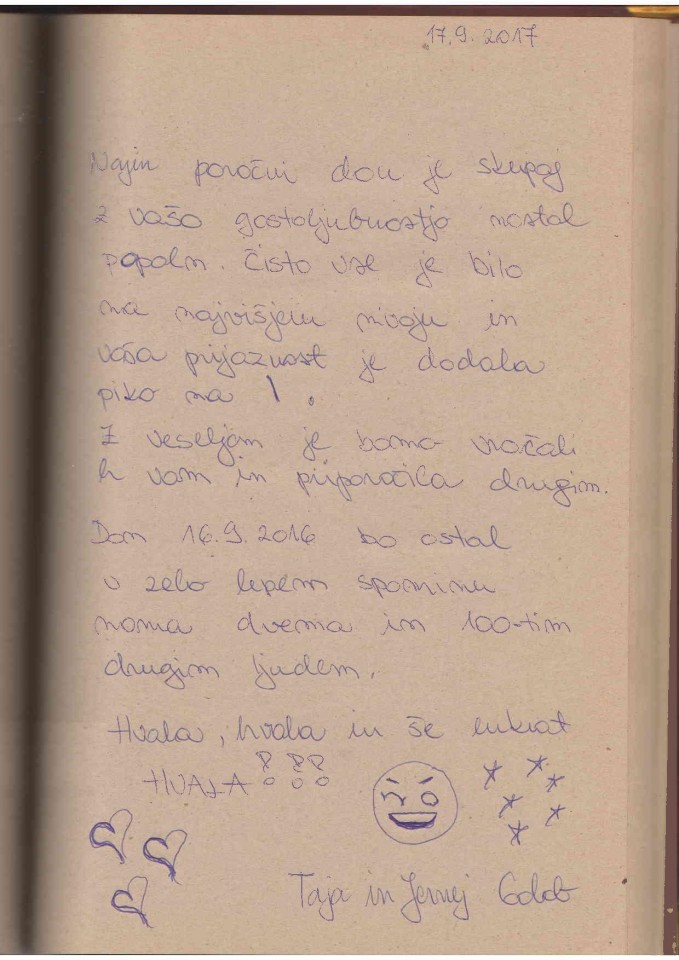 17.9.2017
Najin poročni dan je skupaj
z vašo gostoljubnostjo nastal
popoln. Čisto vse je bilo
na najvišjem nivoju in
vaša prijaznost je dodala
piko na I.
Z veseljem je bomo vračali
k vam in priporočila drugim.
Dan 16.9.2016 bo ostal
v zelo lepem spominu
nama dvema in 100-tim
drugim ljudem.
Hvala, hvala in še enkrat
HVALA !!!
Taja in Jernej Golob